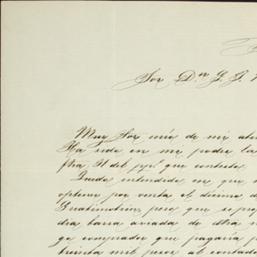 Sor Dn J. J.
Muy Sor mio de mi
Ha sido en mi poder la
Ntra. 11 del ppdo que contesta.
Queda entendido en que
optar por venta al
Guatimotzin para que
dia barra aviada de otra
go comprador que pagaria
treinta mil pesos al contado